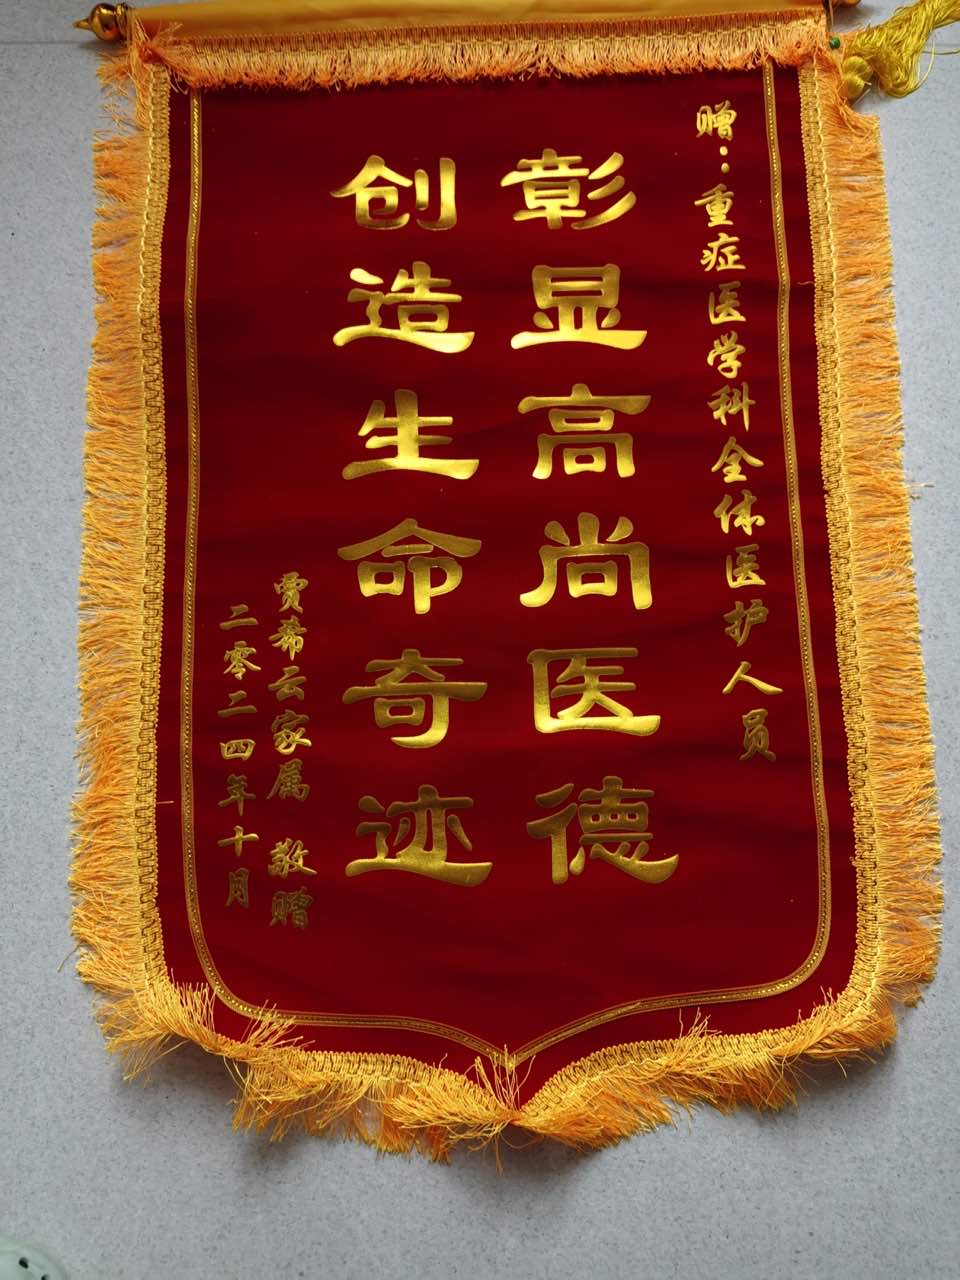 赠：重症医学科全体医护人员
彰显高尚医德
创造生命奇迹
贾希云家属 敬赠
二零二四年十月